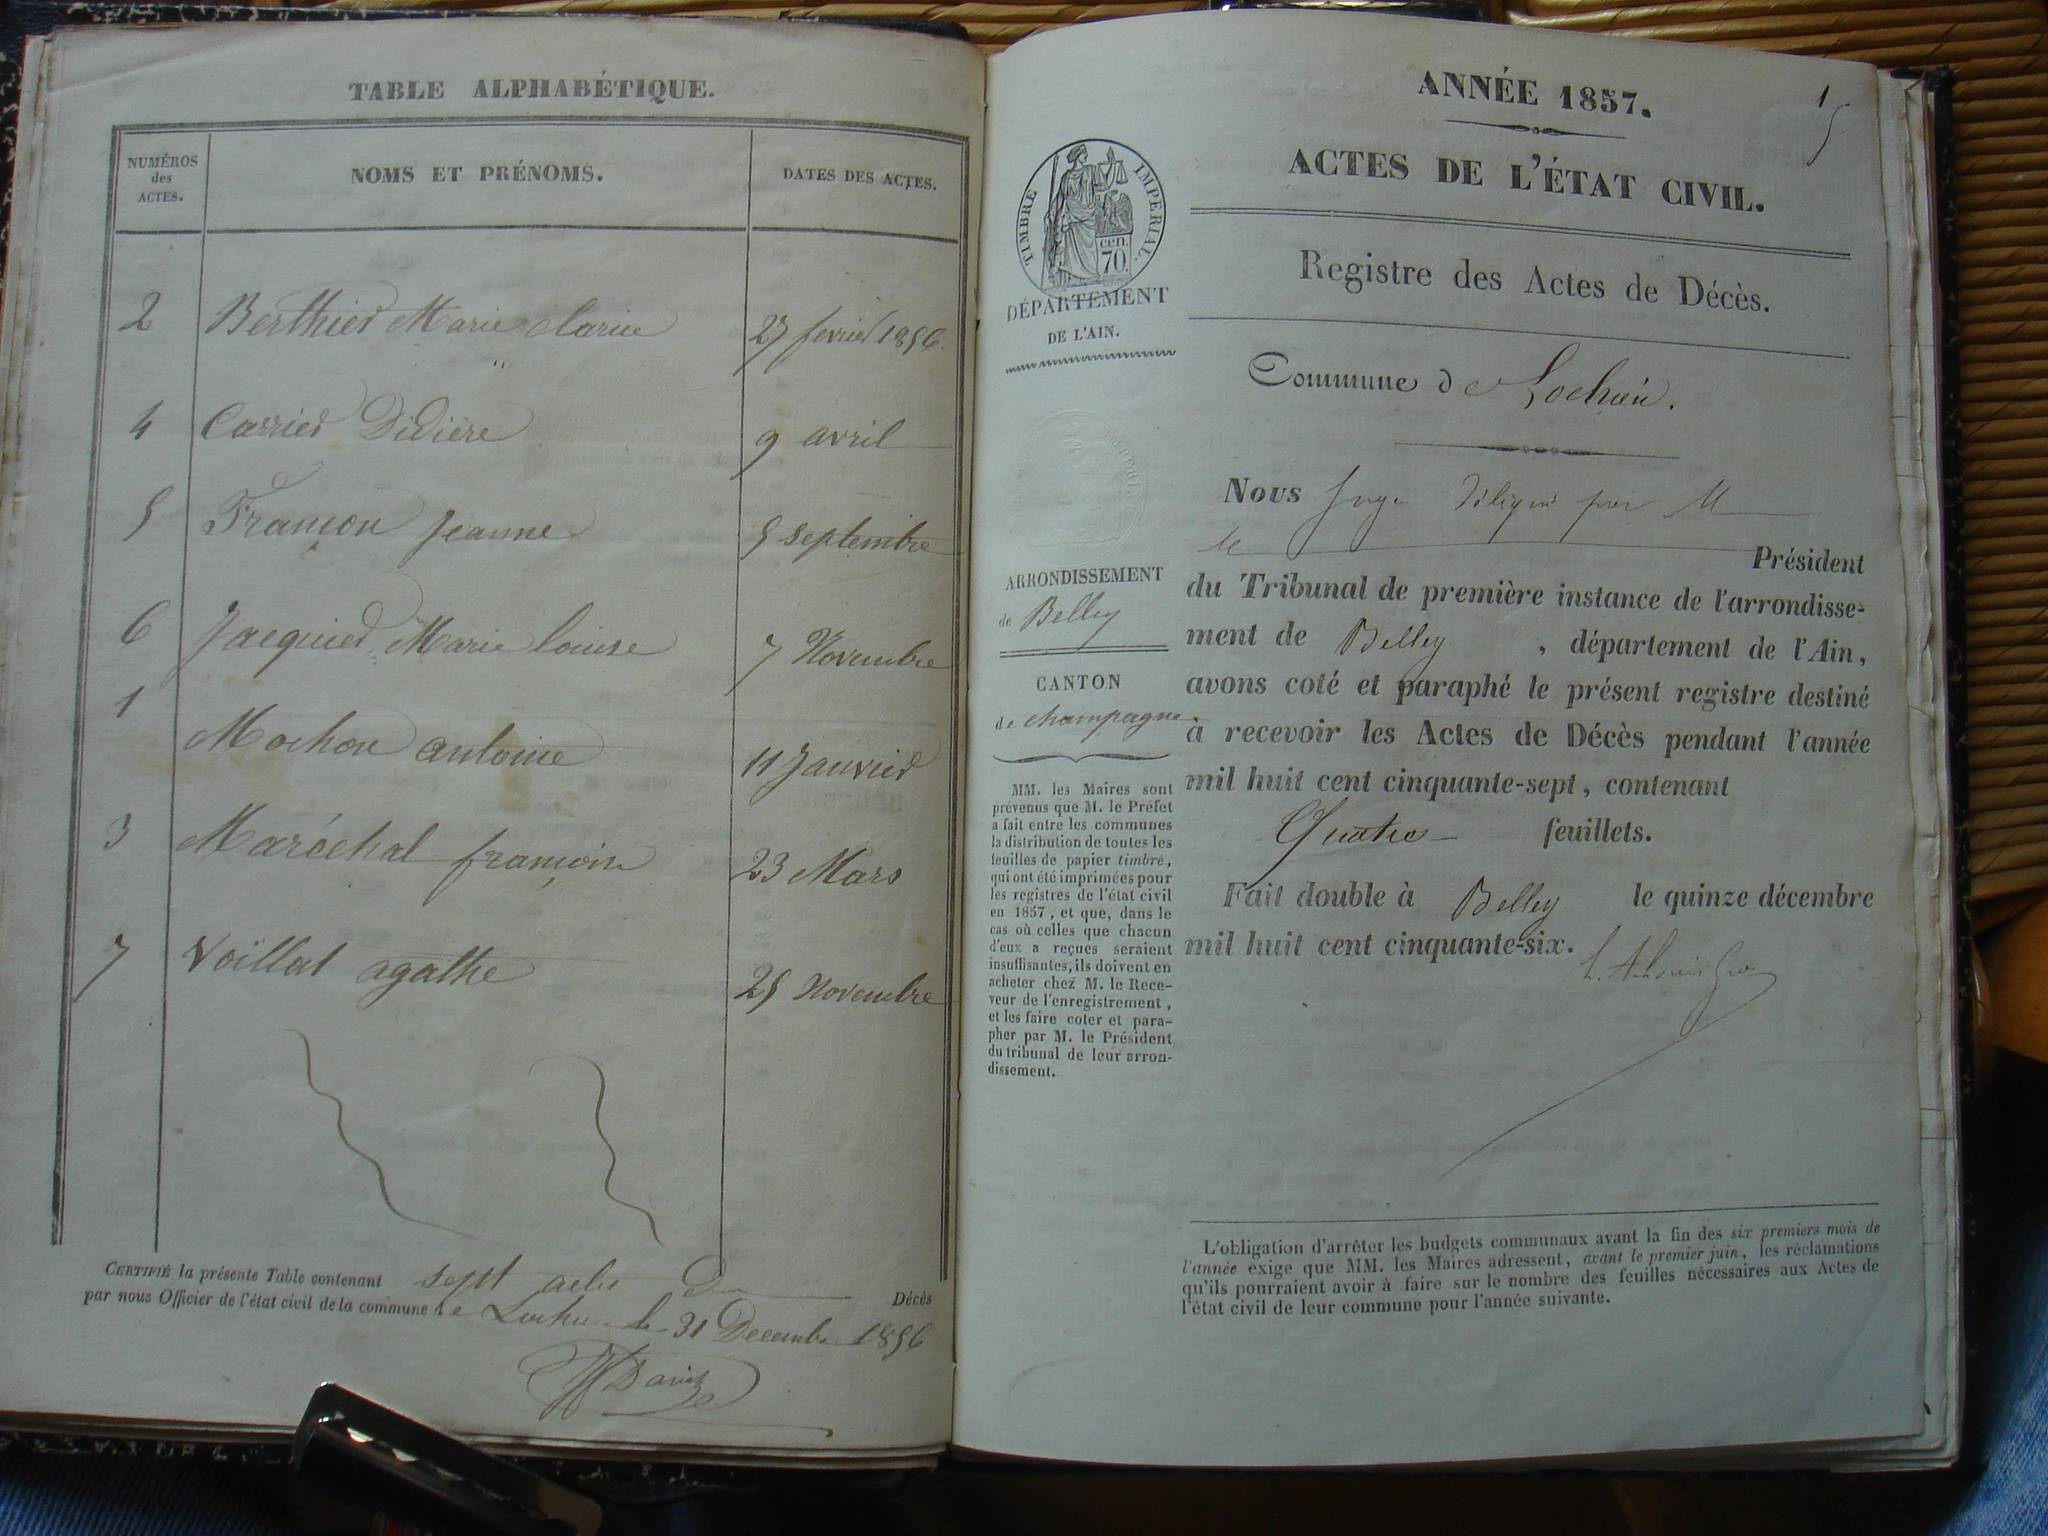 TABLE ALPHABÉTIQUE.
NUMÉROS
des
ACTES.
NOMS ET PRÉNOMS.
DATES DES ACTES.
2 Berthier Marie clarice 27 fevrier 1856.
4 Carrier Didière 9 avril
5 Françon Jeanne 5 septembre
6 Jacquier Marie louise 7 Novembre
1 Mochon antoine 11 Janvier
3 Maréchal françoise 23 Mars
7 Voillat agathe 25 Novembre
CERTIFIÉ la présente Table contenant sept actes De Décès
par nous Officier de l'état civil de la commune de Lochieu le 31 Decembre 1856
ANNÉE 1857.
1
ACTES DE L'ÉTAT CIVIL.
TIMBRE IMPERIAL.
cen.
70.
DÉPARTEMENT
DE L'AIN.
Registre des Actes de Décès.
Commune de Lochieu.
ARRONDISSEMENT
de Belley
CANTON
de champagne
MM. les Maires sont
prévenus que M. le Préfet
a fait entre les communes
la distribution de toutes les
feuilles de papier timbré,
qui ont été imprimées pour
les registres de l'état civil
en 1857, et que, dans le
cas où celles que chacun
d'eux a reçues seraient
insuffisantes, ils doivent en
acheter chez M. le Rece-
veur de l'enregistrement,
et les faire coter et para-
pher par M. le Président
du tribunal de leur arron-
dissement.
Nous Juge délégué par M
le Président
du Tribunal de première instance de l'arrondisse-
ment de Belley, département de l'Ain,
avons coté et paraphé le présent registre destiné
à recevoir les Actes de Décès pendant l'année
mil huit cent cinquante-sept, contenant
Quatre feuillets.
Fait double à Belley le quinze décembre
mil huit cent cinquante-six.
L'obligation d'arrêter les budgets communaux avant la fin des six premiers mois de
l'année exige que MM. les Maires adressent, avant le premier juin, les réclamations
qu'ils pourraient avoir à faire sur le nombre des feuilles nécessaires aux Actes de
l'état civil de leur commune pour l'année suivante.